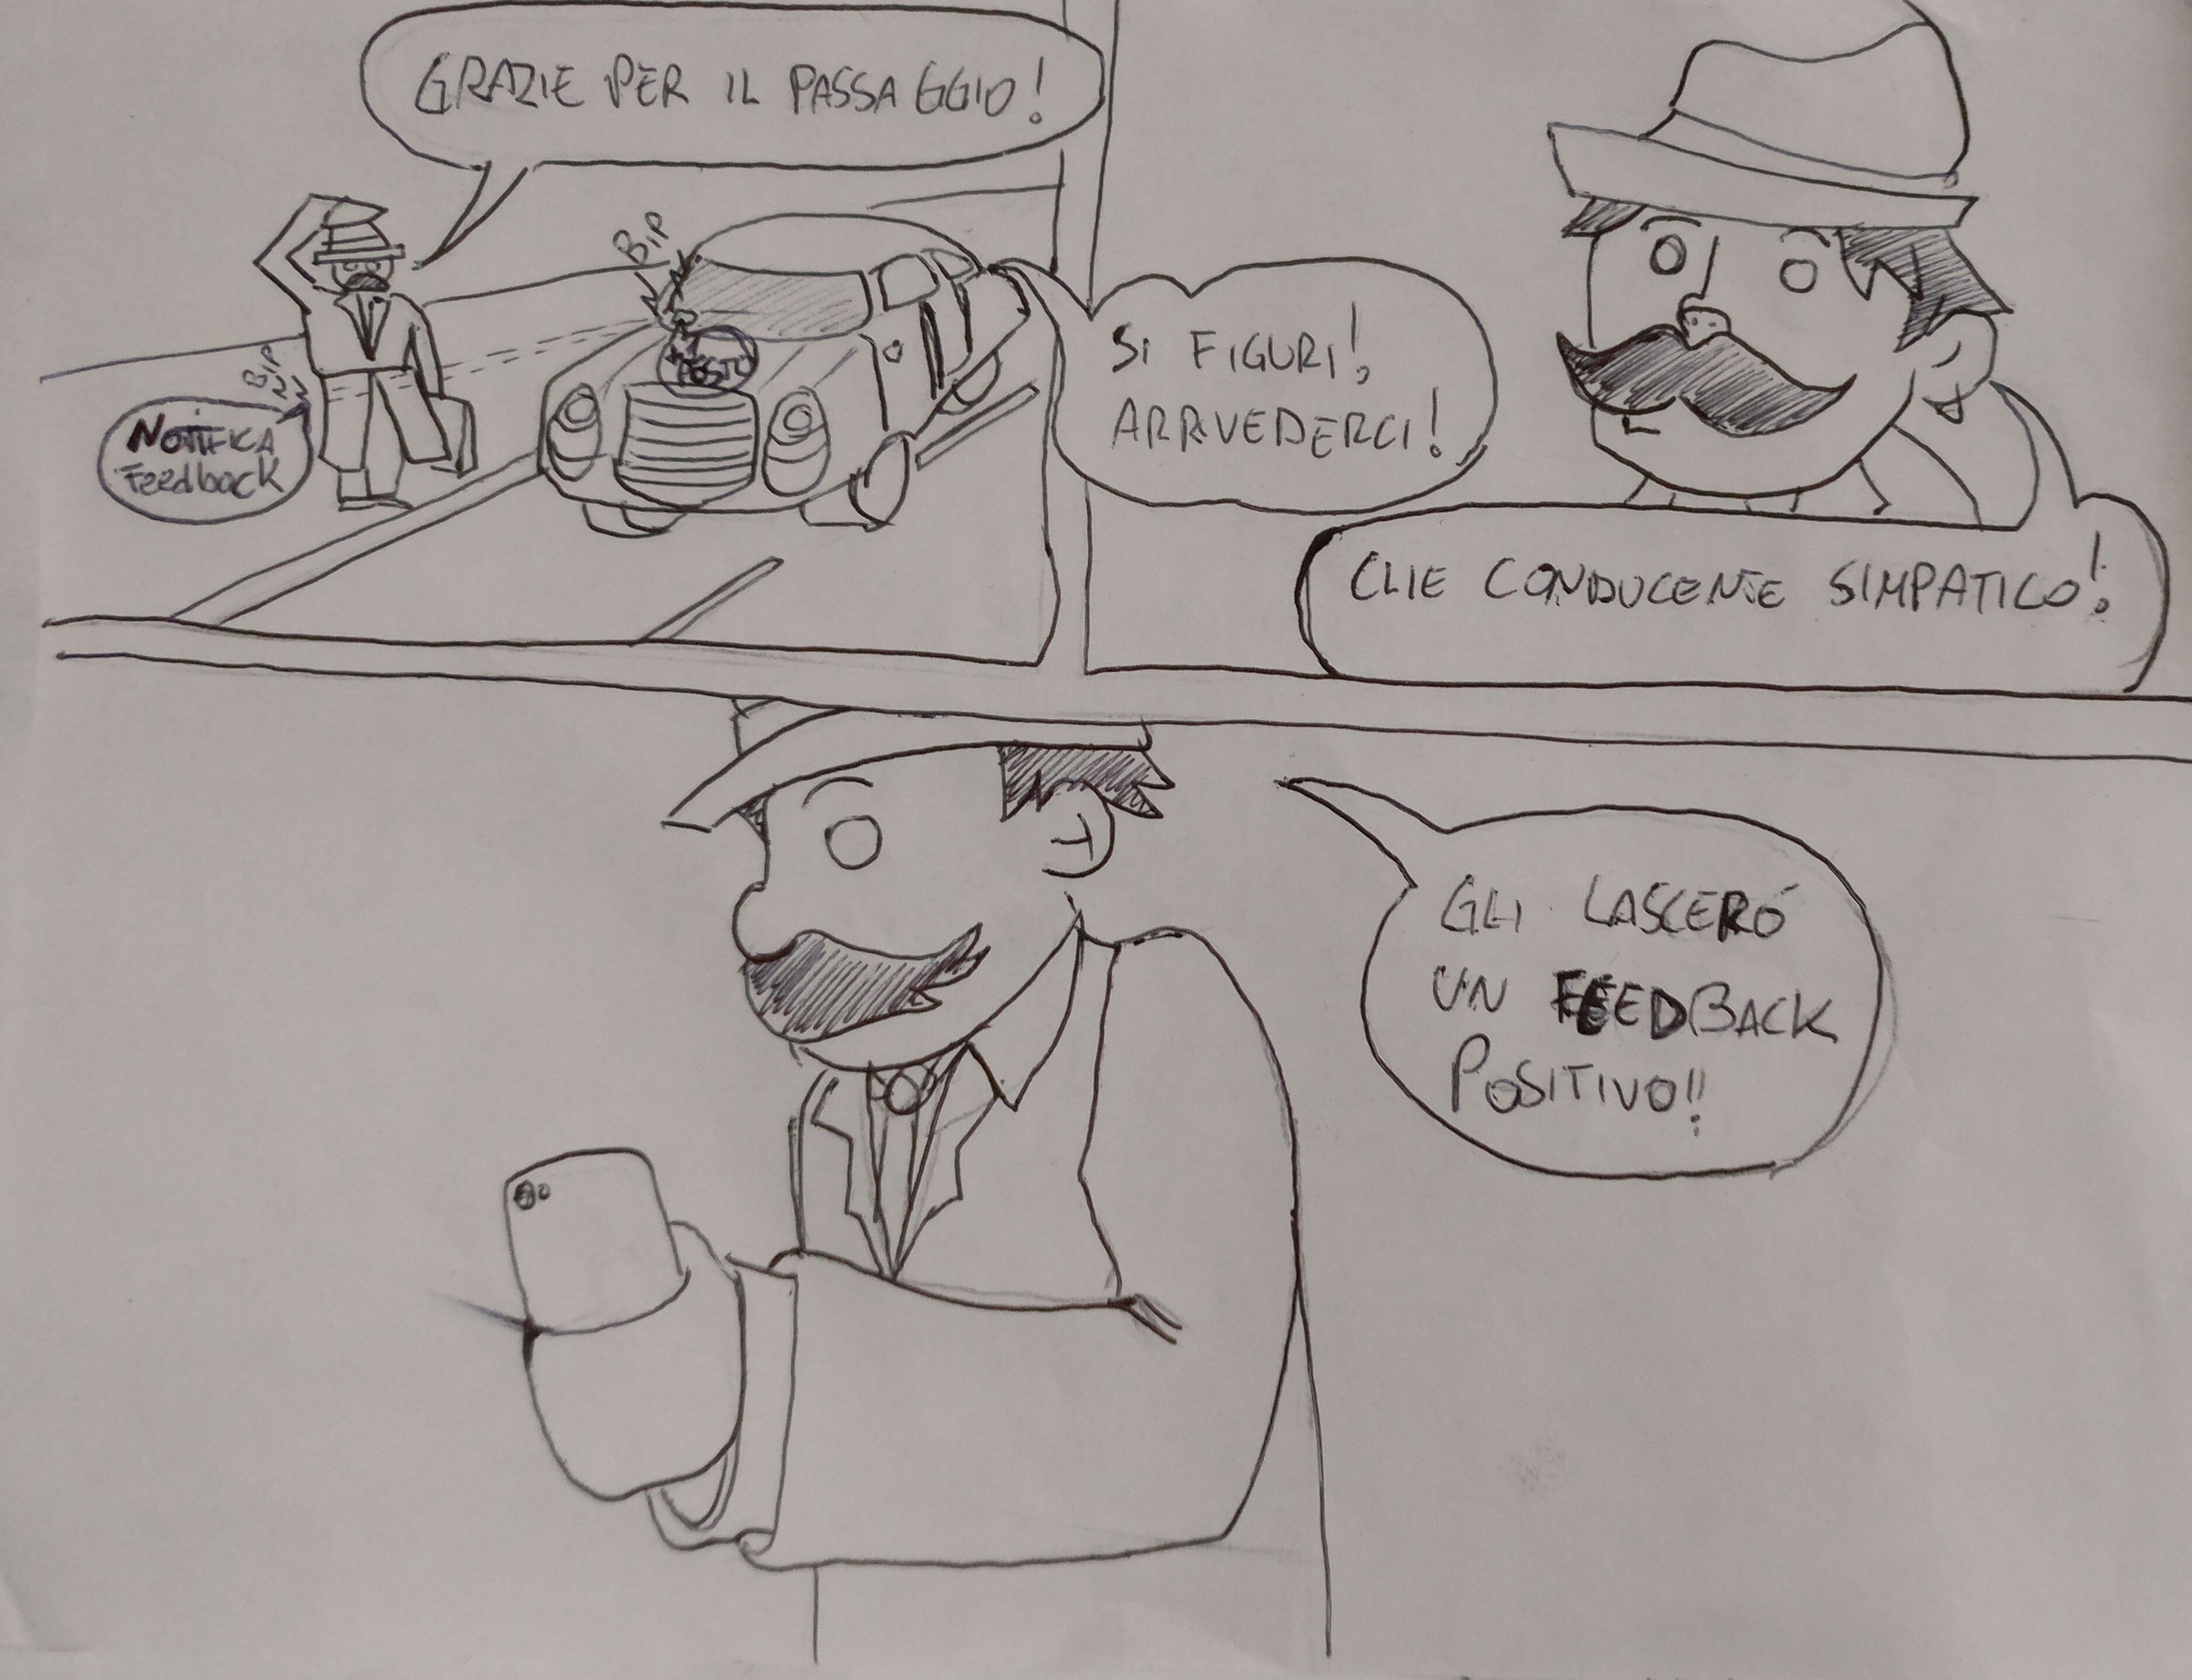 GRAZIE PER IL PASSAGGIO!
BIP
+1
POSTO
BIP
NOTIFICA
Feedback
SI FIGURI!
ARRIVEDERCI!
CHE CONDUCENTE SIMPATICO!
GLI LASCERÓ
UN FEEDBACK
POSITIVO!!